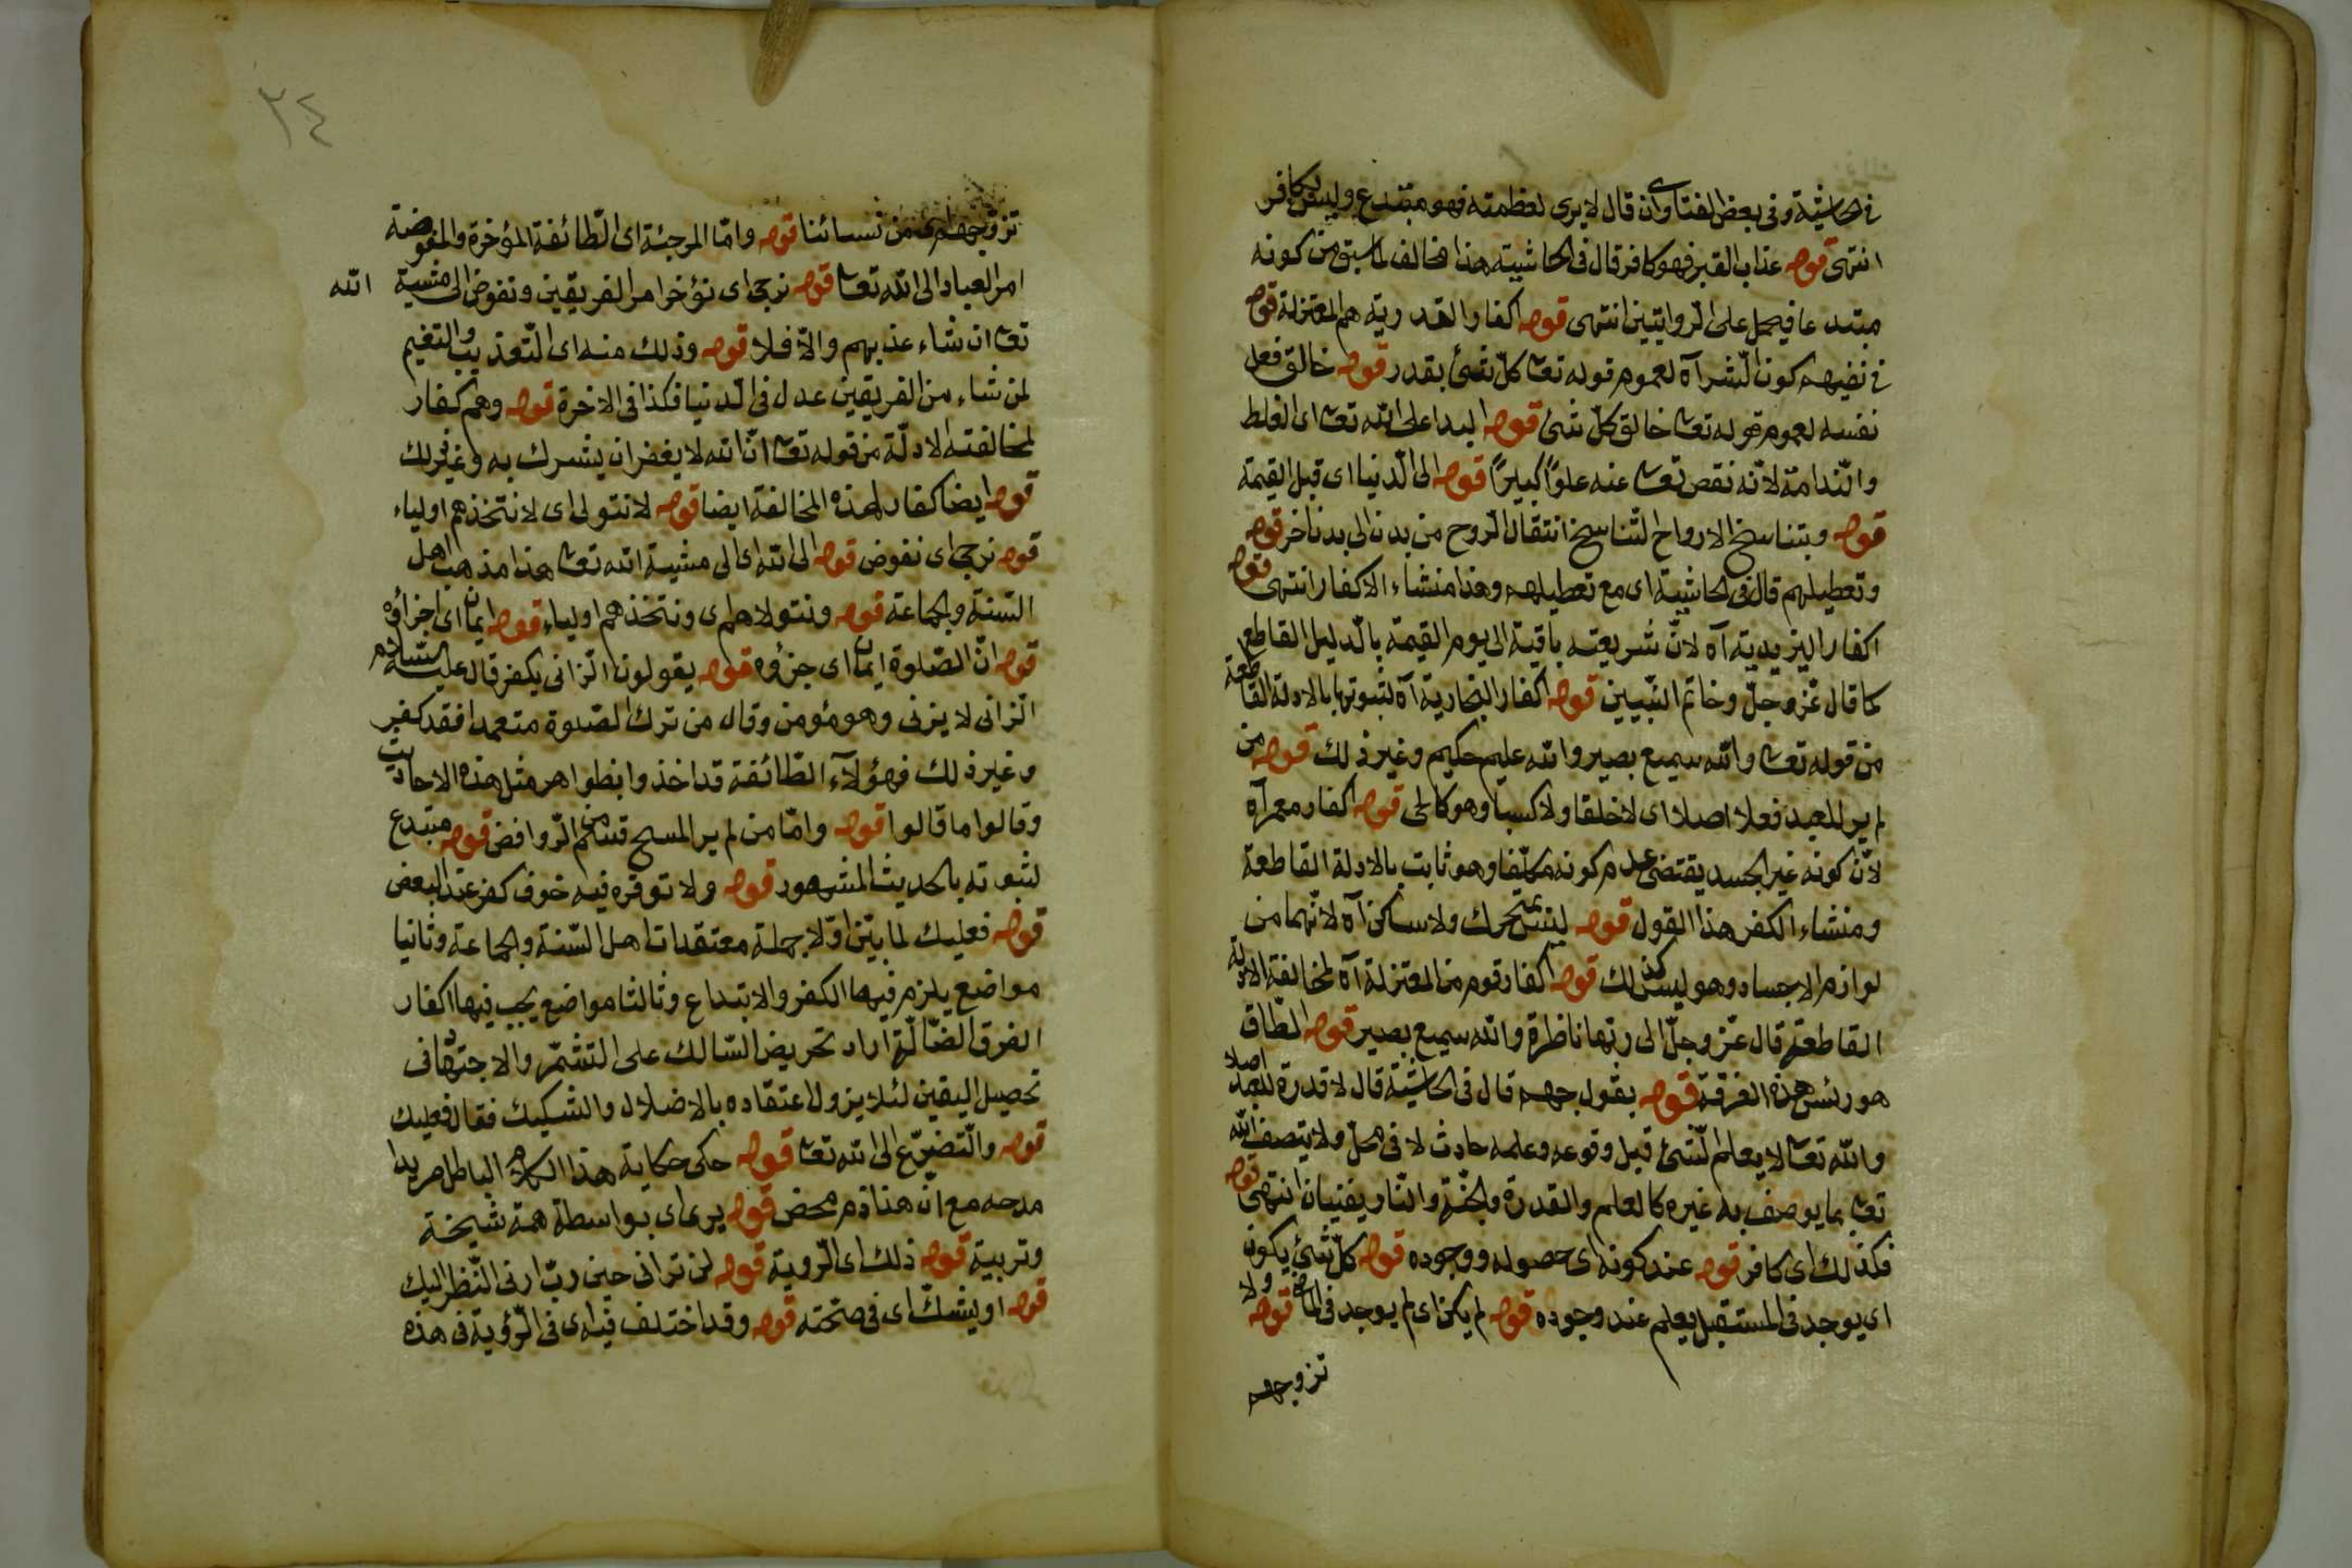 في الحاشية وفي بعض الفتاوى ان قال لا يرى لعظمته فهو مبتدع وليس بكافر
انتهى قوله عذاب القبر فهو كافر قال في الحاشية هذا مخالف لما سبق من كونه
مبتدعا فيحمل على الروايتين انتهى قوله اكفار القدرية هم المعتزلة قوله
في نفيهم كون الشر آه لعموم قوله تعا كل شئ بقدر قوله خالق فعل
نفسه لعموم قوله تعا خالق كل شئ قوله البدا على الله تعا اى الغلط
والندامة لانه نقص تعا عنه علوا كبيرا قوله الى الدنيا اى قبل القيمة
قوله وبتناسخ الارواح التناسخ انتقال الروح من بدن الى بدن اخر قوله
وتعطيلهم قال في الحاشية اى مع تعطيلهم وهذا منشاء الاكفار انتهى قوله
اكفار اليزيدية آه لان شريعته باقية الى يوم القيمة بالدليل القاطع
كما قال عز وجل وخاتم النبيين قوله اكفار النجارية آه لثبوتها بالادلة القاطعة
من قوله تعا والله سميع بصير والله عليم حكيم وغير ذلك قوله من
لم ير للعبد فعلا اصلا اى لا خلقا ولا كسبا وهو كالحى قوله اكفار معمر آه
لان كونه غير الجسد يقتضى عدم كونه مكلفا وهو ثابت بالادلة القاطعة
ومنشاء الكفر هذا القول قوله ليس بمتحرك ولا ساكن آه لانهما من
لوازم الاجساد وهو ليس كذلك قوله اكفار قوم من المعتزلة آه لمخالفة الادلة
القاطعة قال عز وجل الى ربها ناظرة والله سميع بصير قوله الطاق
هو رئس هذه الفرقة قوله بقول جهم قال في الحاشية قال لا قدرة للعبد اصلا
والله تعا لا يعلم الشئ قبل وقوعه وعلمه حادث لا في محل ولا يتصف الله
تعا بما يوصف به غيره كالعلم والقدرة والجنة والنار يفنيان انتهى قوله
فكذلك اى كافر قوله عند كونه اى حصوله ووجوده قوله كل شئ يكون
اى يوجد في المستقبل يعلم عند وجوده قوله لم يكن اى لم يوجد في الماضى قوله ولا
تزوجهم
٣٤
تزوجهم اى من نسائنا قوله واما المرجئة اى الطائفة المؤخرة والمفوضة
امر العباد الى الله تعا قوله نرجى اى نؤخر امر الفريقين ونفوض الى مشية الله
تعا ان شاء عذبهم والا فلا قوله وذلك منه اى التعذيب والتنعيم
لمن شاء من الفريقين عدل في الدنيا فكذا في الاخرة قوله وهم كفار
لمخالفته الادلة من قوله تعا ان الله لا يغفر ان يشرك به وغير ذلك
قوله ايضا كفار لهذه المخالفة ايضا قوله لا نتولى اى لا نتخذهم اولياء
قوله نرجى اى نفوض قوله الى الله اى الى مشية الله تعا هذا مذهب اهل
السنة والجماعة قوله ونتولاهم اى ونتخذهم اولياء قوله ايمان اى اجزاؤه
قوله ان الصلوة ايمان اى جزؤه قوله يقولون الزانى يكفر قال عليه السلام
الزانى لا يزنى وهو مؤمن وقال من ترك الصلوة متعمدا فقد كفر
وغير ذلك فهؤلاء الطائفة قد اخذوا بظواهر مثل هذه الاحاديث
وقالوا ما قالوا قوله واما من لم ير المسح منهم الروافض قوله مبتدع
لثبوته بالحديث المشهور قوله ولا توقره فيه خوف كفر عند البعض
قوله فعليك لما بين اولا جملة معتقدات اهل السنة والجماعة وثانيا
مواضع يلزم فيها الكفر والابتداع وثالثا مواضع يجب فيها اكفار
الفرق الضالة اراد تحريض السالك على التشمر والاجتهاد في
تحصيل اليقين لئلا يزول اعتقاده بالاضلال والتشكيك فقال فعليك
قوله والتضرع الى الله تعا قوله حكى حكاية هذا الكلام الباطل مريدا
مدحه مع ان هذا ذم محض قوله يرى اى بواسطة همة شيخة
وتربية قوله ذلك اى الروية قوله لن ترانى حين رب ارنى انظر اليك
قوله او ليشك اى في صحته قوله وقد اختلف فيه اى في الرؤية في هذه